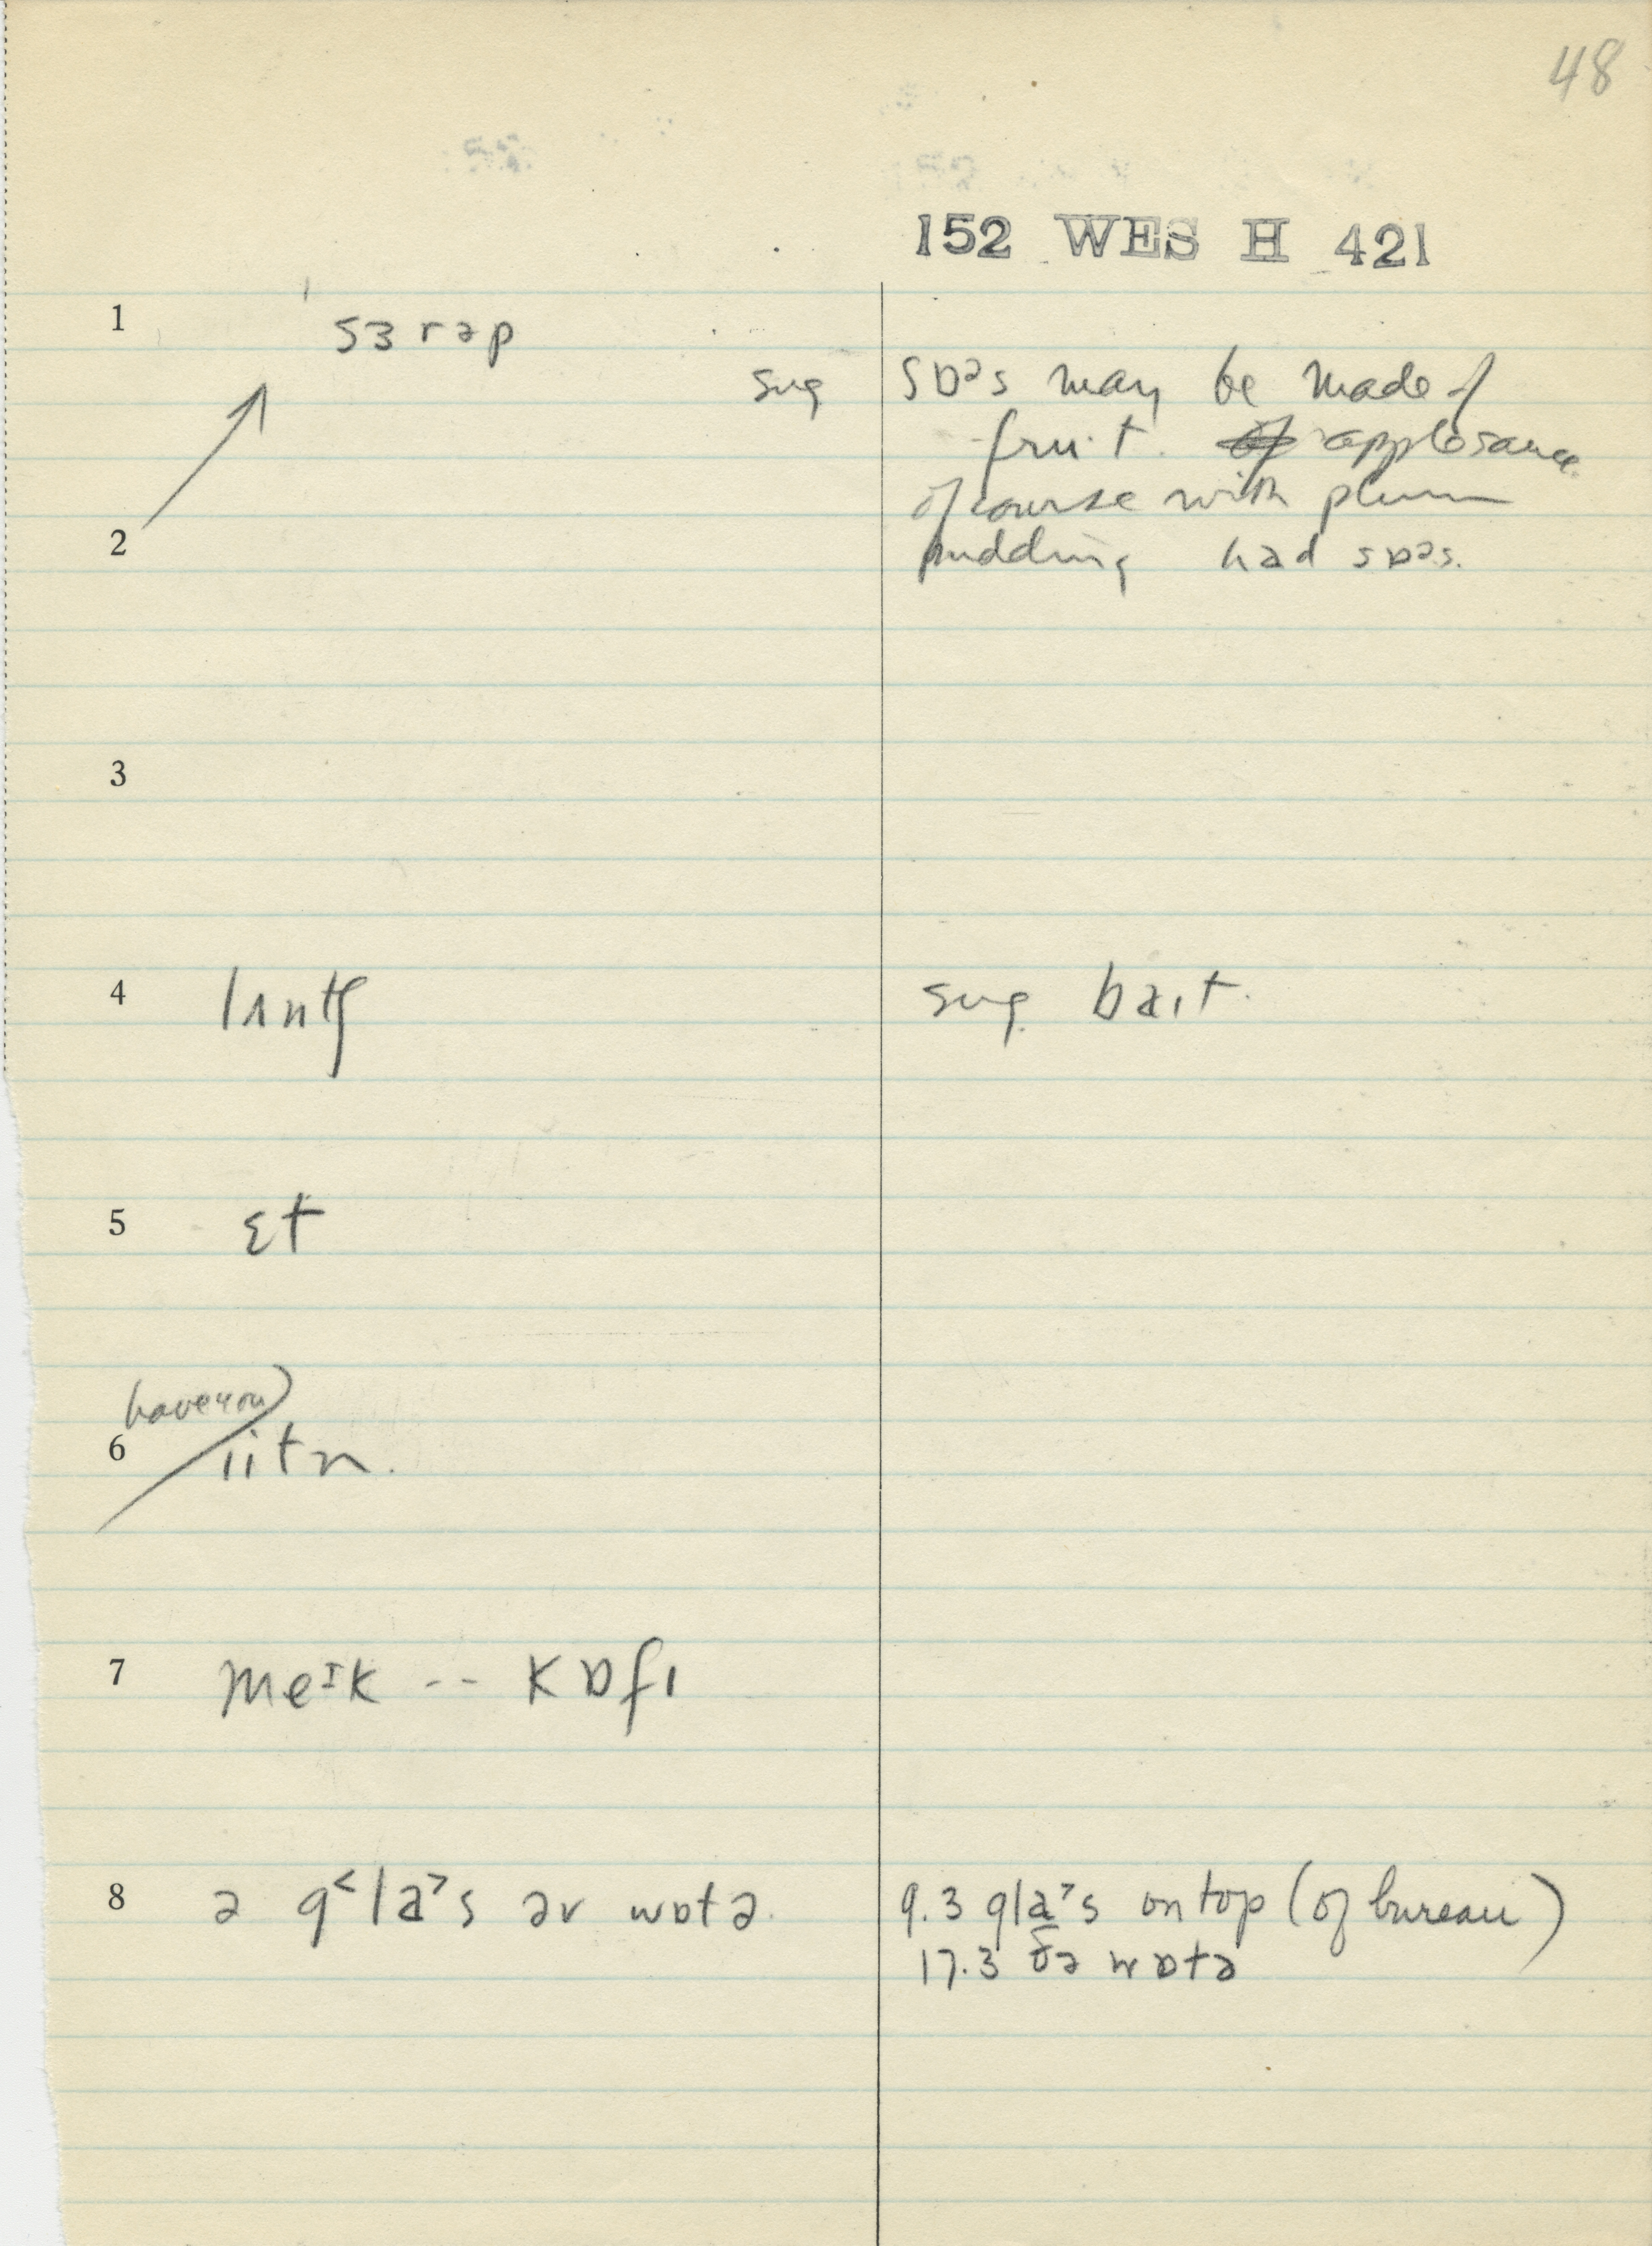 48
152 WES H 421
1 sɜrəp
sug sɒᵊs may be made of
fruit. applesauce
of course with plum
2 pudding had sɒᵊs.
3
4 lʌntʃ sug. bait.
5 ɛt
have you
6 iitn.
7 meᶦk -- kɒfɪ
8 ə g˂la˃s əv wɒtə. 9.3 gla˃s on top (of bureau)
17.3 ðə wɒtə